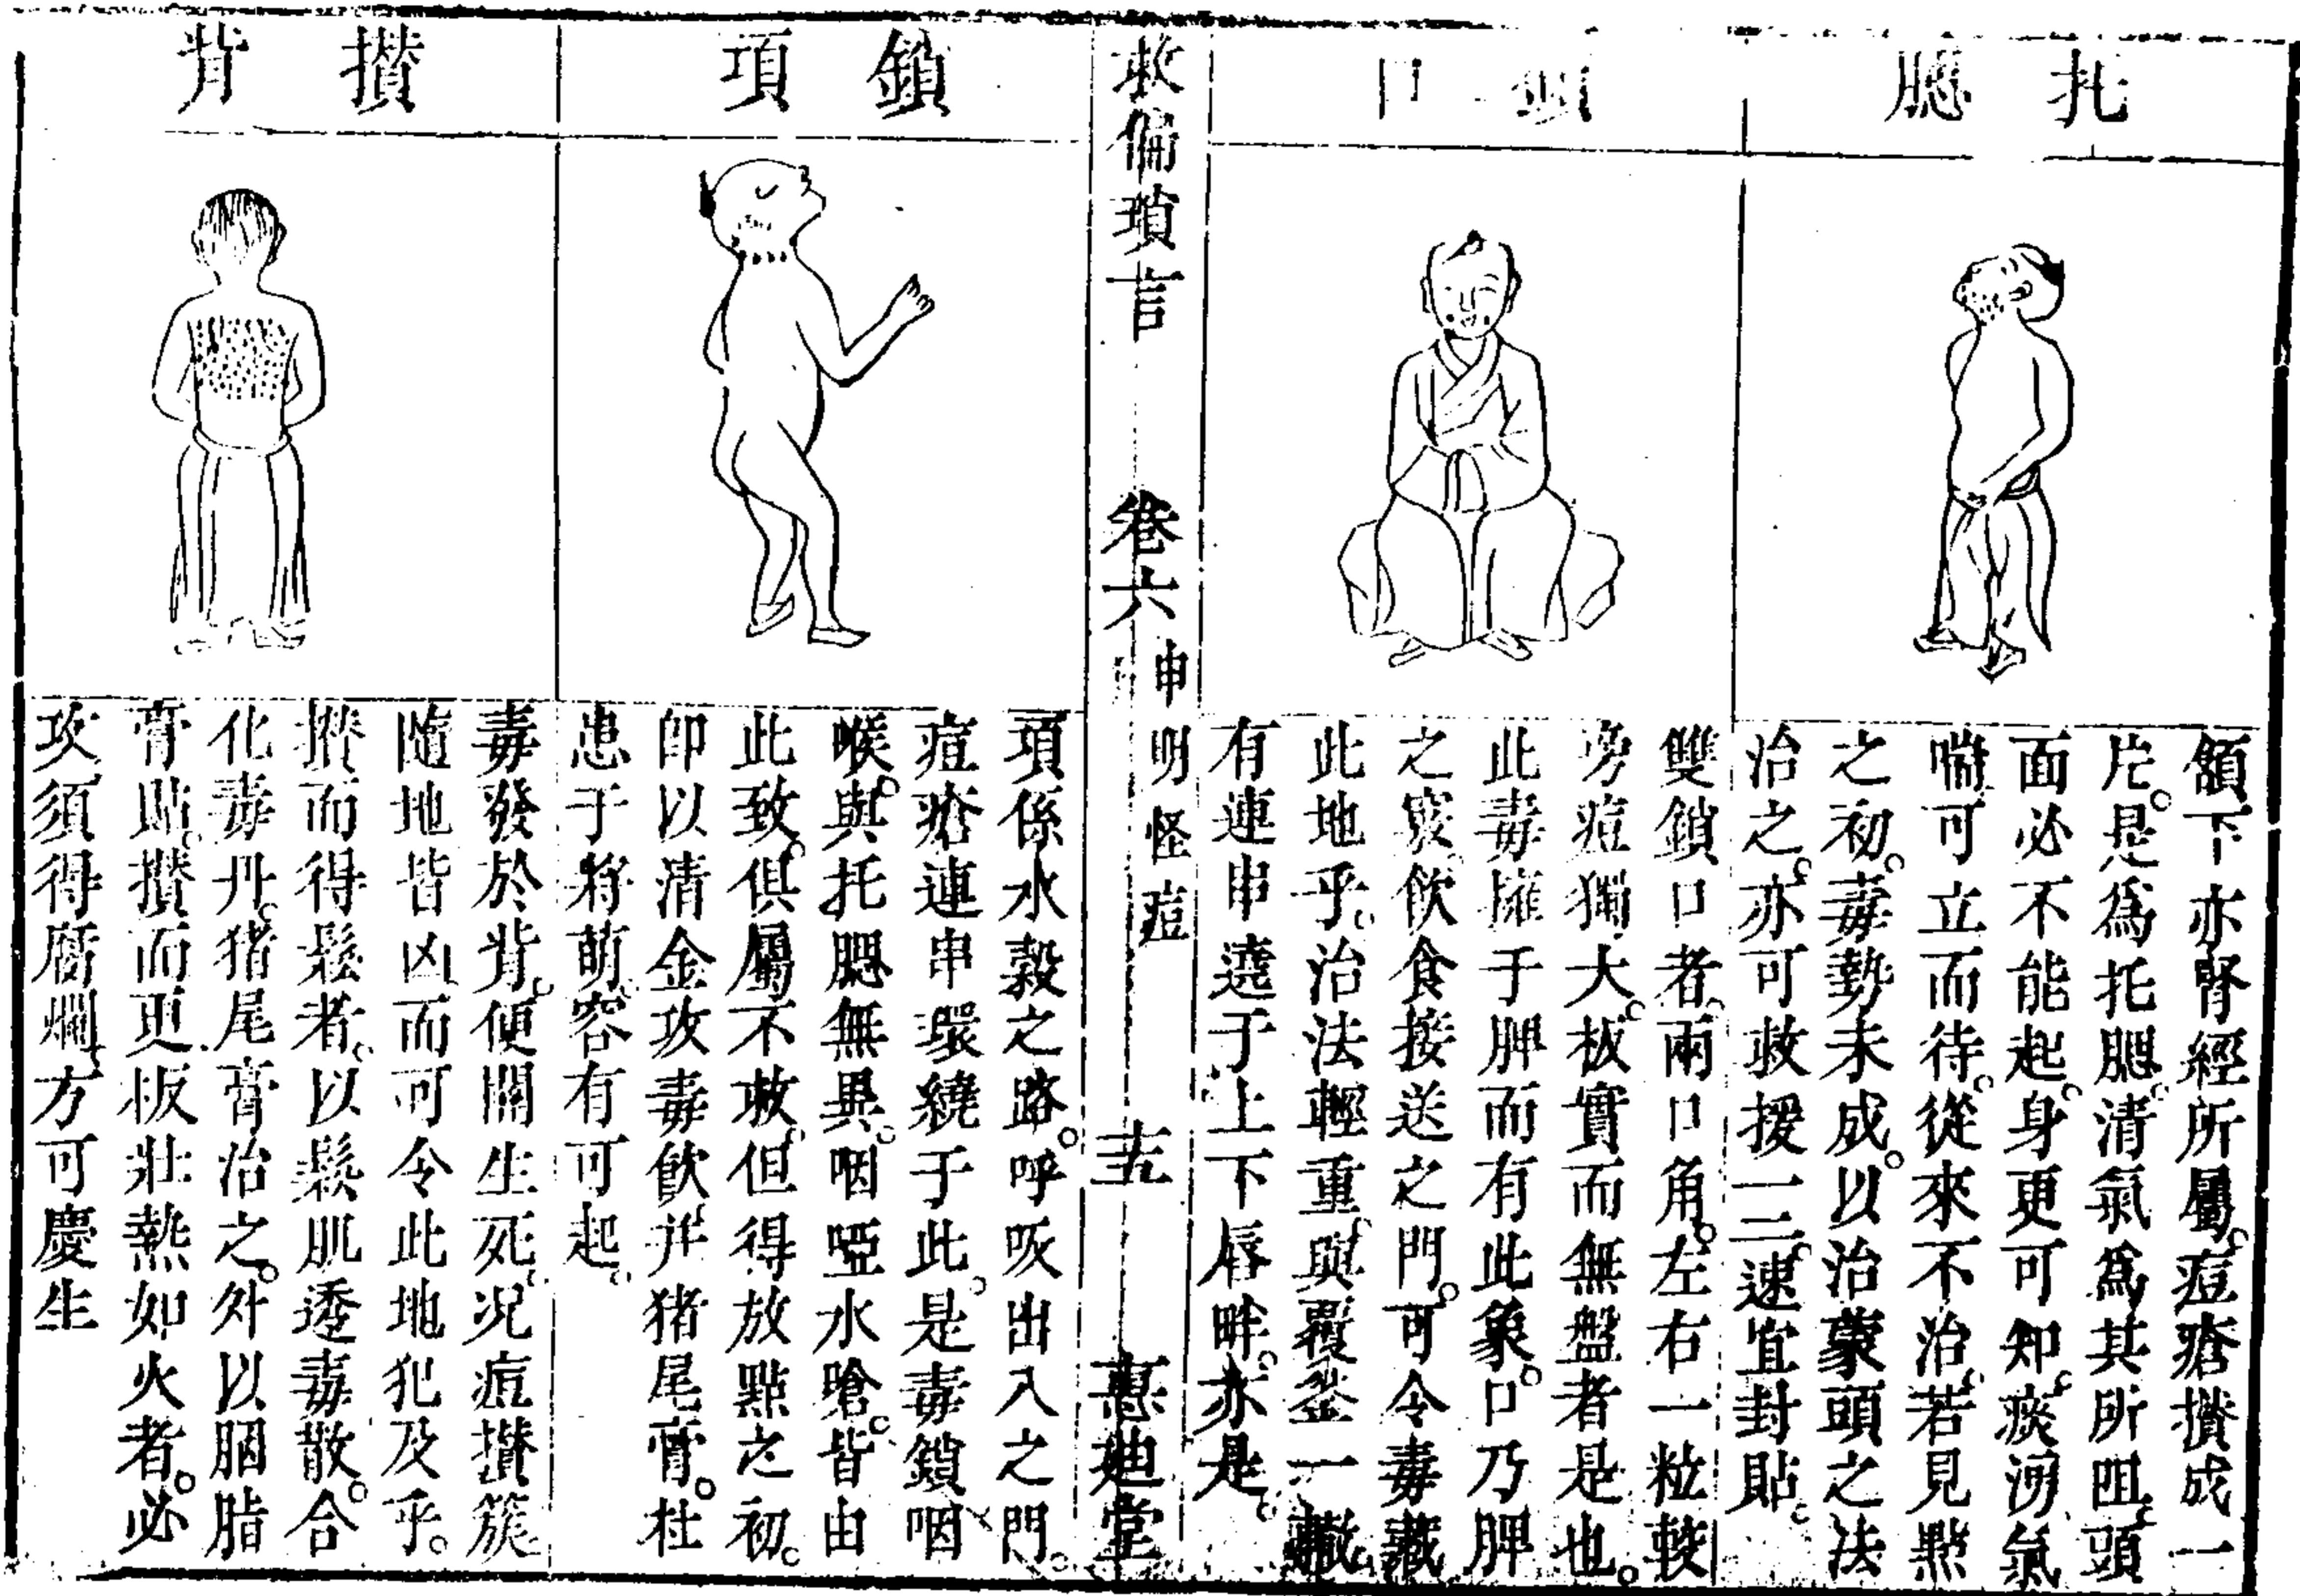 托腮
頷下亦腎經所屬。痘瘡攢成一
片。是爲托腮。清氣爲其所咀。頭
面必不能起。身更可知。痰湧氣
喘可立而待。從來不治。若見點
之初。毒勢未成。以治蒙頭之法
治之。亦可救援一二。速宜封貼。
鎖口
雙鎖口者。兩口角。左右一粒較
旁痘獨大。板實而無盤者是也。
此毒擁于脾而有此象。口乃脾
之竅。飲食接送之門。可令毒藏
此地乎。治法輕重與覆釜一轍
有連串遶于上下唇畔。亦是。
救偏瑣言 卷六 申明怪痘 十五 惠廸堂
鎖項
項係水穀之路。呼吸出入之門。
痘瘡連串環繞于此。是毒鎖咽
喉。與托腮無異。咽啞水嗆。皆由
此致。俱屬不救。但得放點之初。
卽以清金攻毒飲并猪尾膏。杜
患于將萌。容有可起。
攢背
毒發於背。便關生死。况痘攢簇
隨地皆凶而可令此地犯及乎。
攢而得鬆者。以鬆肌透毒散。合
化毒丹。猪尾膏治之。外以胭脂
膏貼。攢而更板壯熱如火者。必
攻須得腐爛。方可慶生